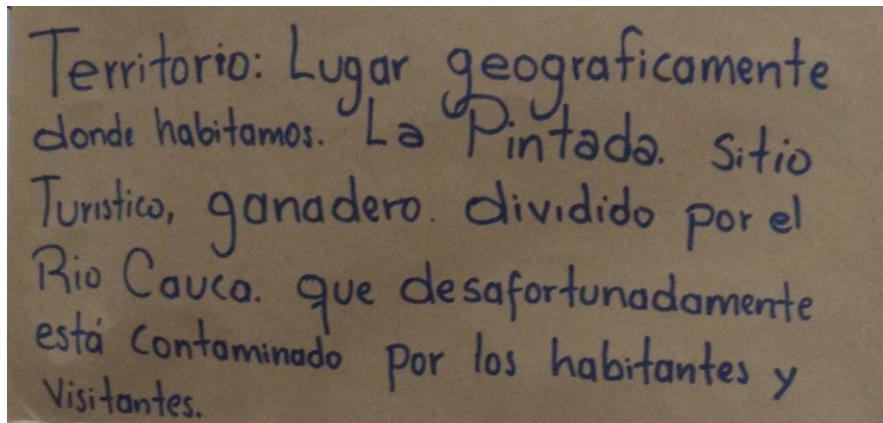 Territorio: Lugar geograficamente
donde habitamos. La Pintada. Sitio
Turistico, ganadero. dividido por el
Rio Cauca. que desafortunadamente
está contaminado por los habitantes y
Visitantes.